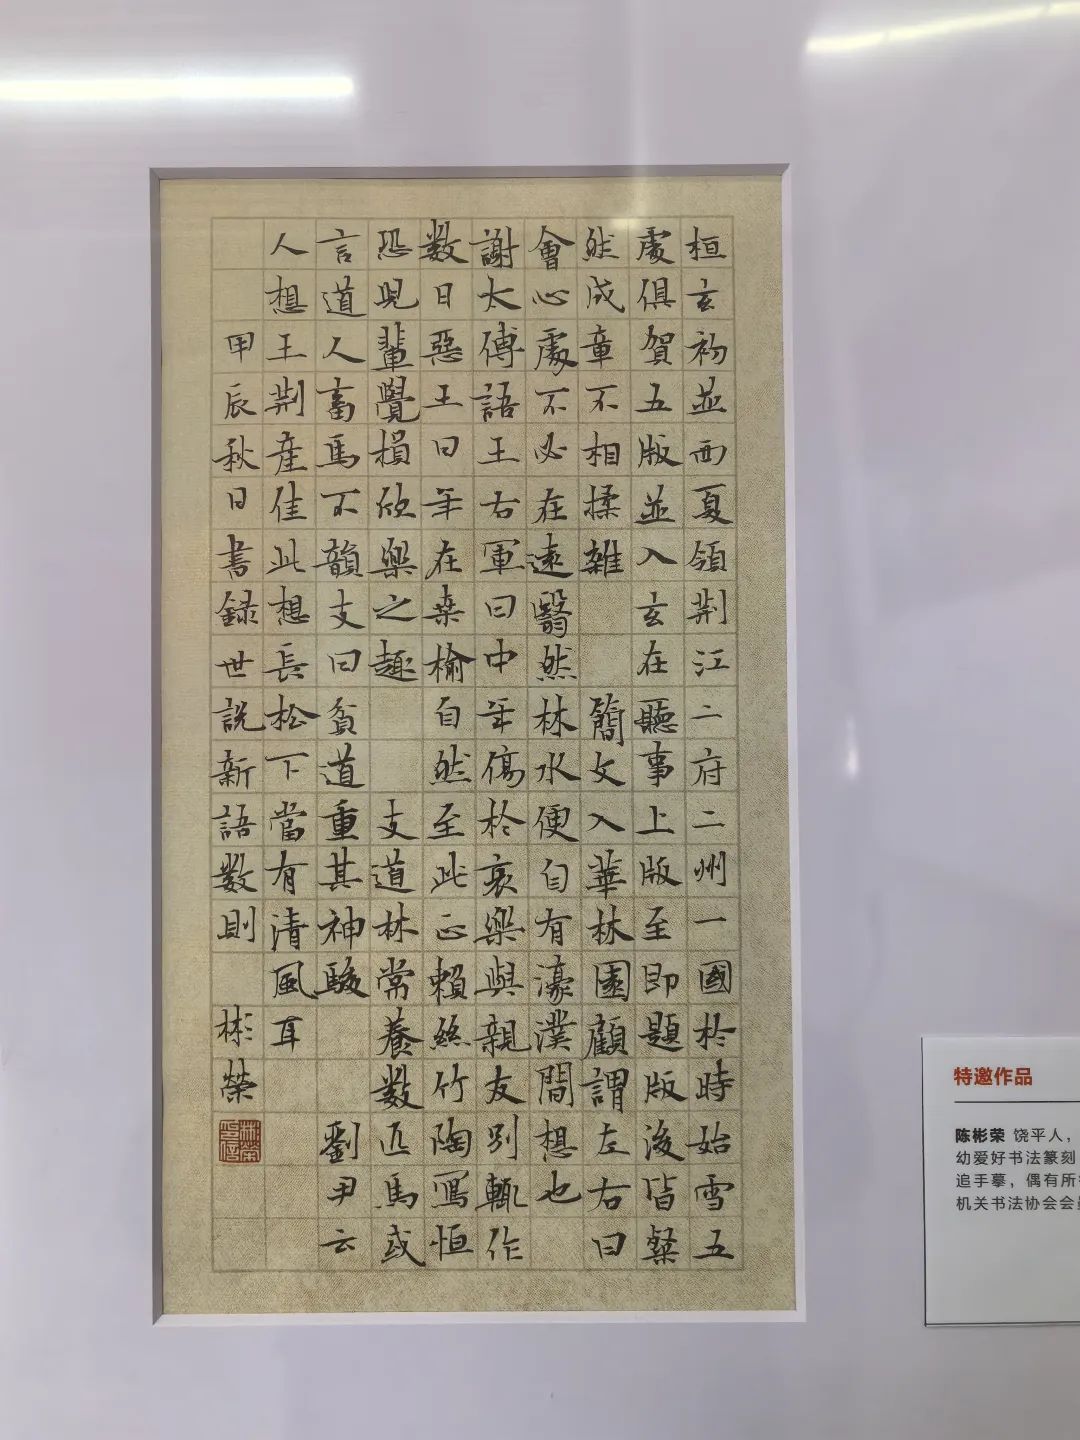 桓玄初並西夏領荆江二府二州一國於時始雪五
處俱賀五版並入玄在聽事上版至即題版後皆粲
然成章不相揉雜　簡文入華林園顧謂左右曰
會心處不必在遠翳然林水便自有濠濮間想也
謝太傅語王右軍曰中年傷於哀樂與親友別輒作
數日惡王曰年在桑榆自然至此正賴絲竹陶寫恒
恐兒輩覺損欣樂之趣　支道林常養數匹馬或
言道人畜馬不韻支曰貧道重其神駿　劉尹云
人想王荆產佳此想長松下當有清風耳
甲辰秋日書録世説新語數則　彬榮
特邀作品
陈彬荣 饶平人，
幼爱好书法篆刻
追手摹，偶有所
机关书法协会会